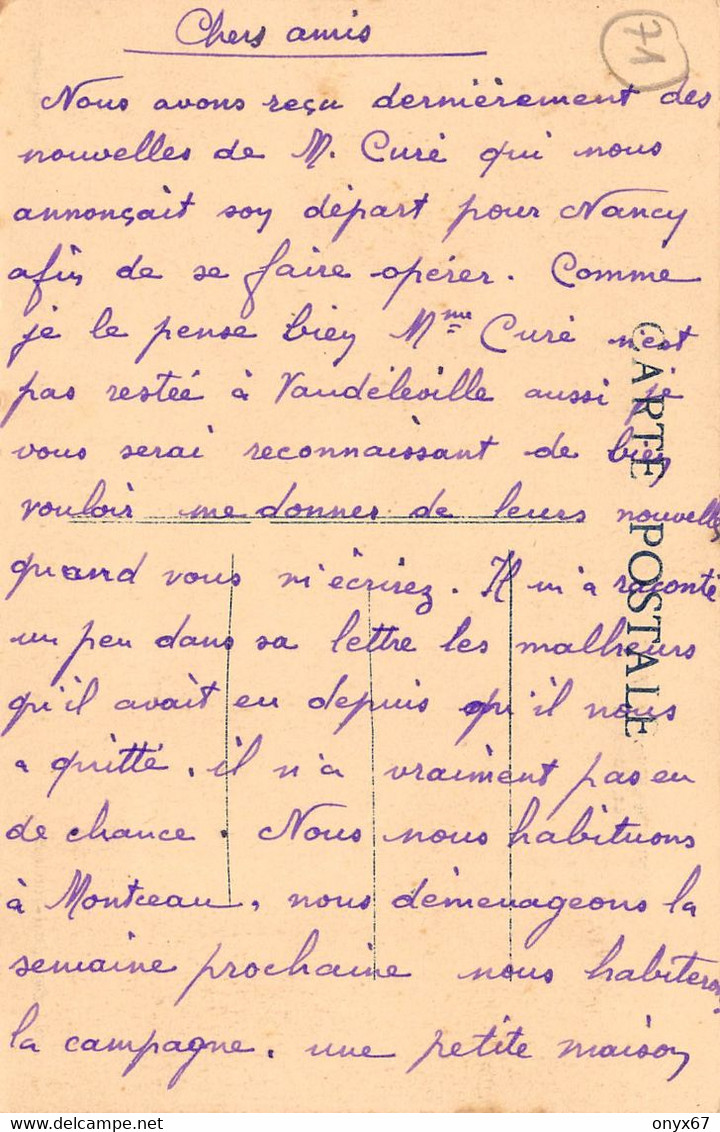 Chers amis
71
Nous avons reçu dernièrement des
nouvelles de M. Curé qui nous
annonçait son départ pour Nancy
afin de se faire opérer. Comme
je le pense bien Mme Curé n'est
pas restée à Vaudéléville aussi je
vous serai reconnaissant de bien
vouloir me donner de leurs nouvelles
quand vous m'écrirez. Il m'a raconté
un peu dans sa lettre les malheurs
qu'il avait eu depuis qu'il nous
a quitté, il n'a vraiment pas eu
de chance. Nous nous habituons
à Montceau, nous déménageons la
semaine prochaine nous habiterons
la campagne, une petite maison
CARTE POSTALE
delcampe.net
onyx67